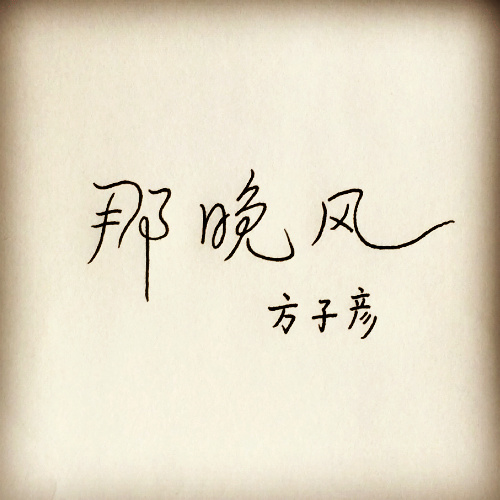 那晚风
方子彦